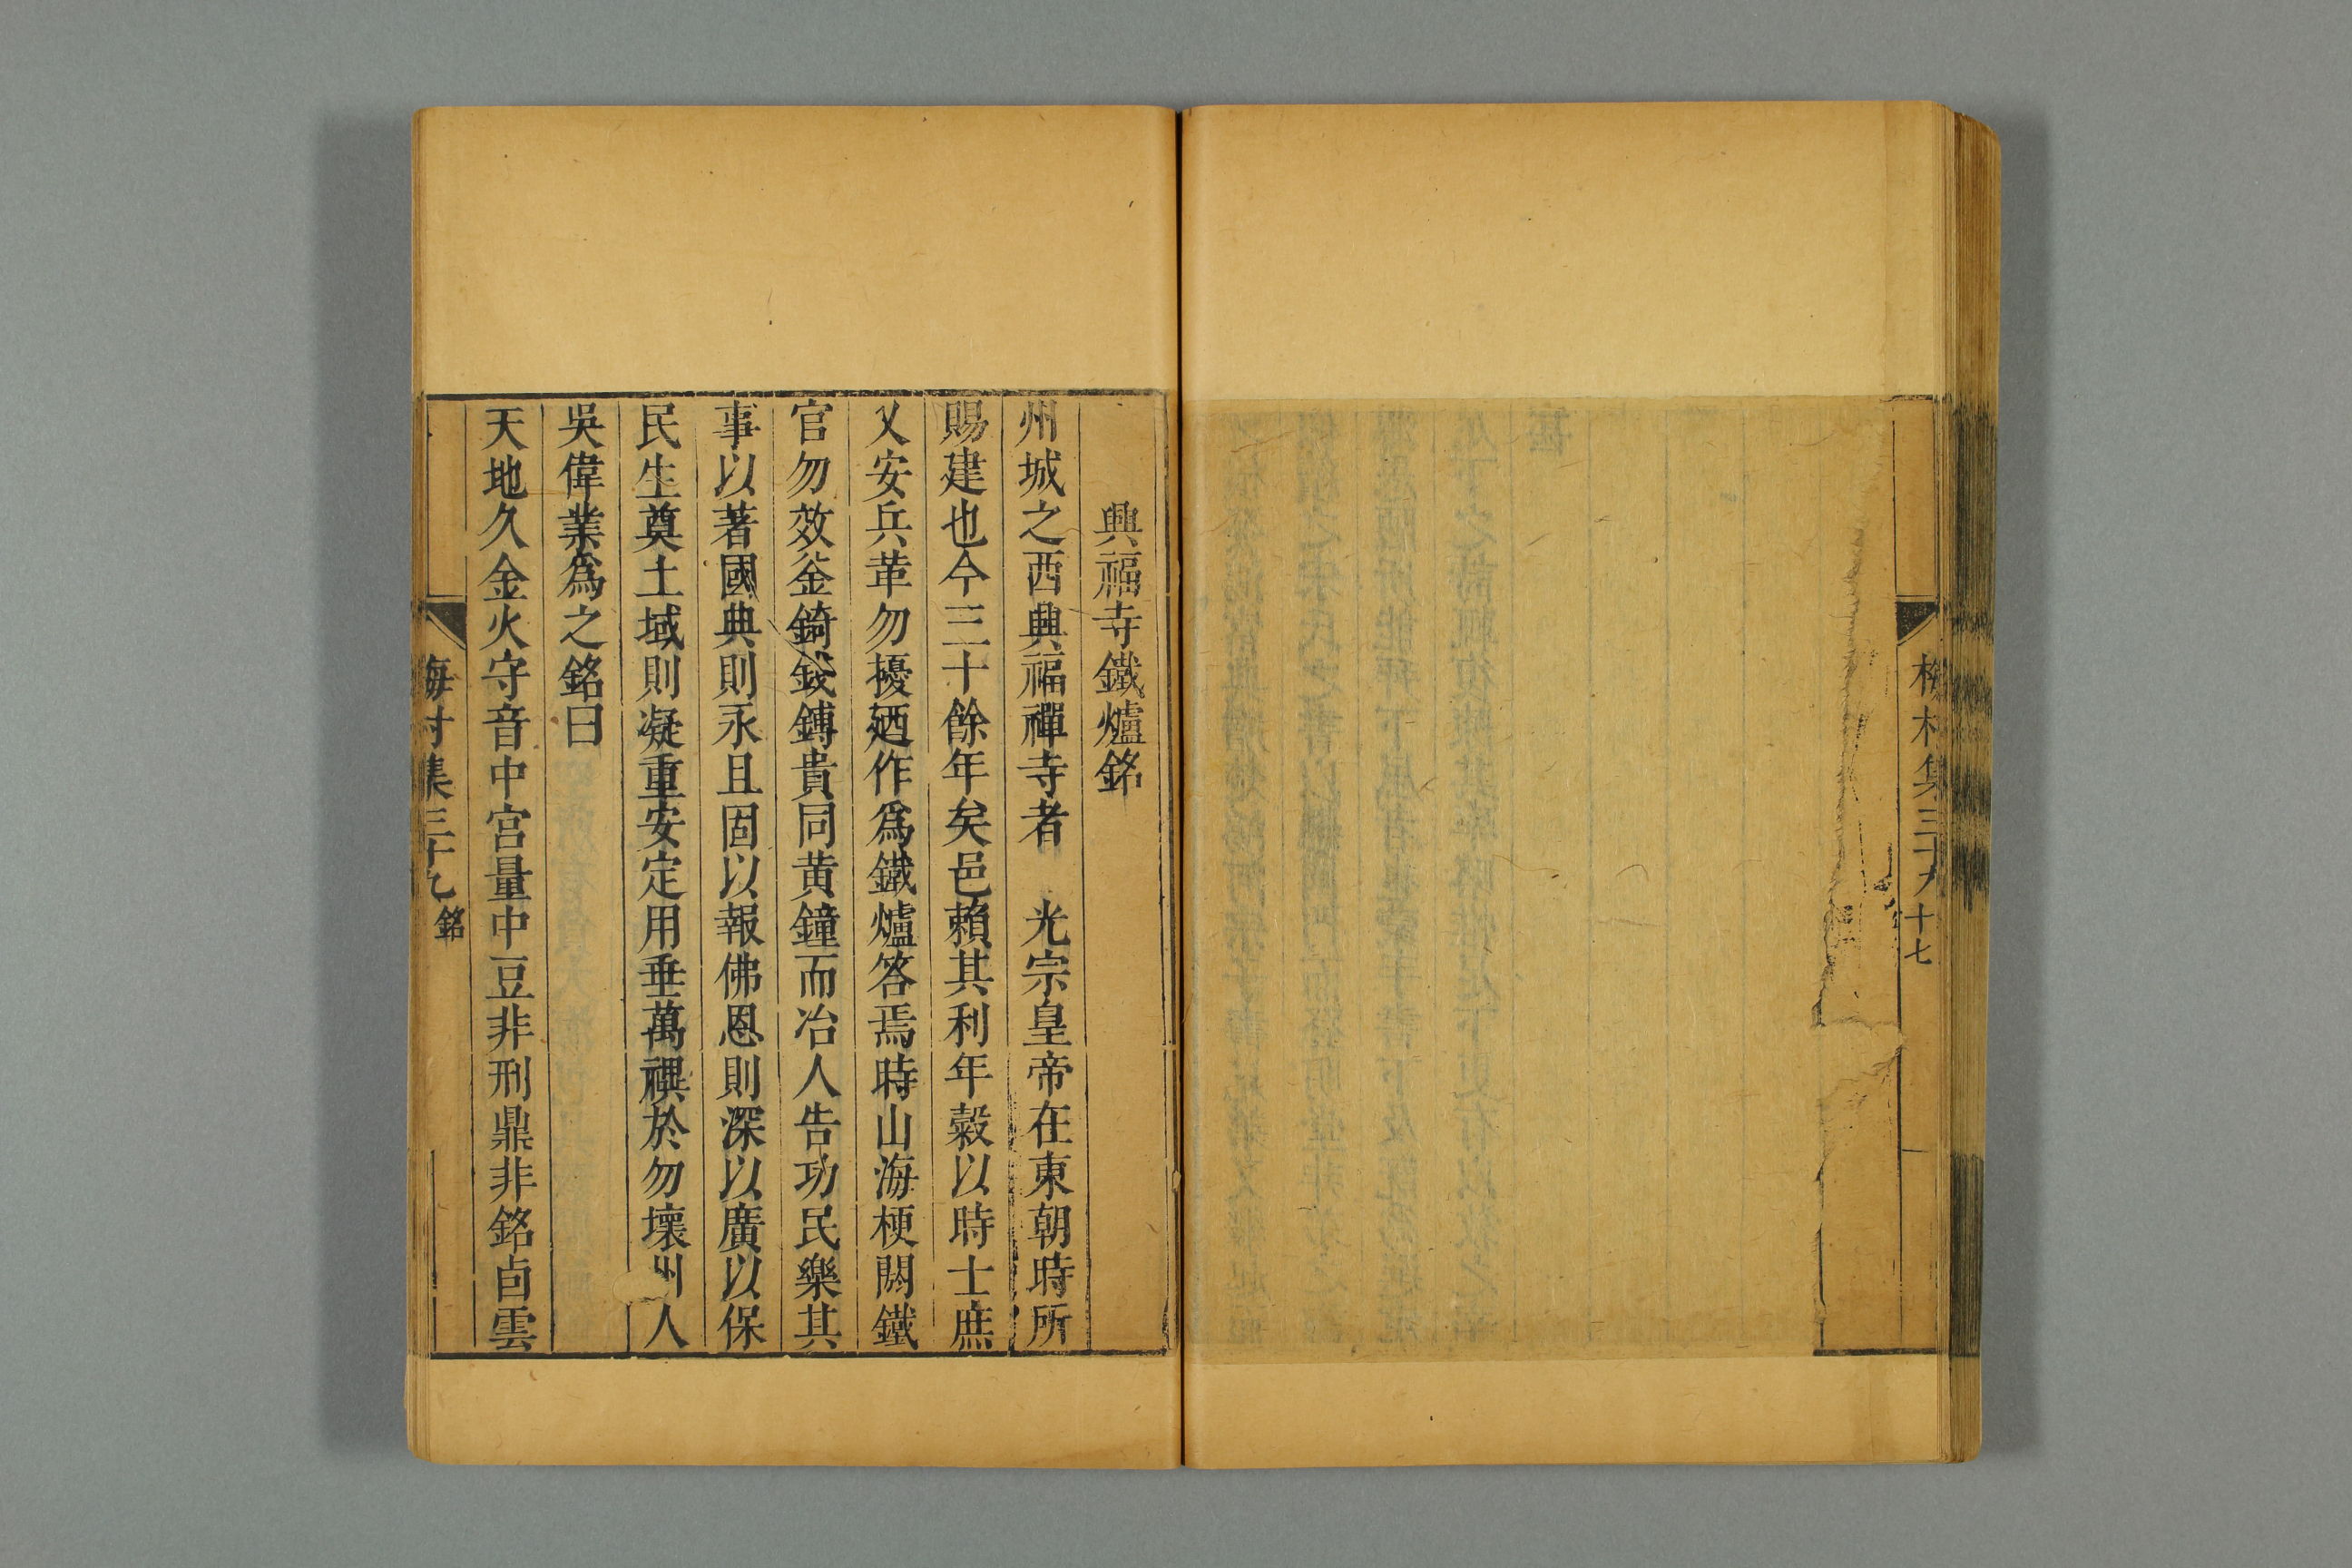 梅村集三十九
十七
興福寺鐵爐銘
州城之西興福禪寺者　光宗皇帝在東朝時所
賜建也今三十餘年矣邑賴其利年穀以時士庶
乂安兵革勿擾廼作爲鐵爐答焉時山海梗閼鐵
官勿效釜錡錢鎛貴同黃鐘而冶人告功民樂其
事以著國典則永且固以報佛恩則深以廣以保
民生奠土域則凝重安定用垂萬禩於勿壞州人
吳偉業爲之銘曰
天地久金火守音中宮量中豆非刑鼎非銘卣雲
梅村集三十九
銘